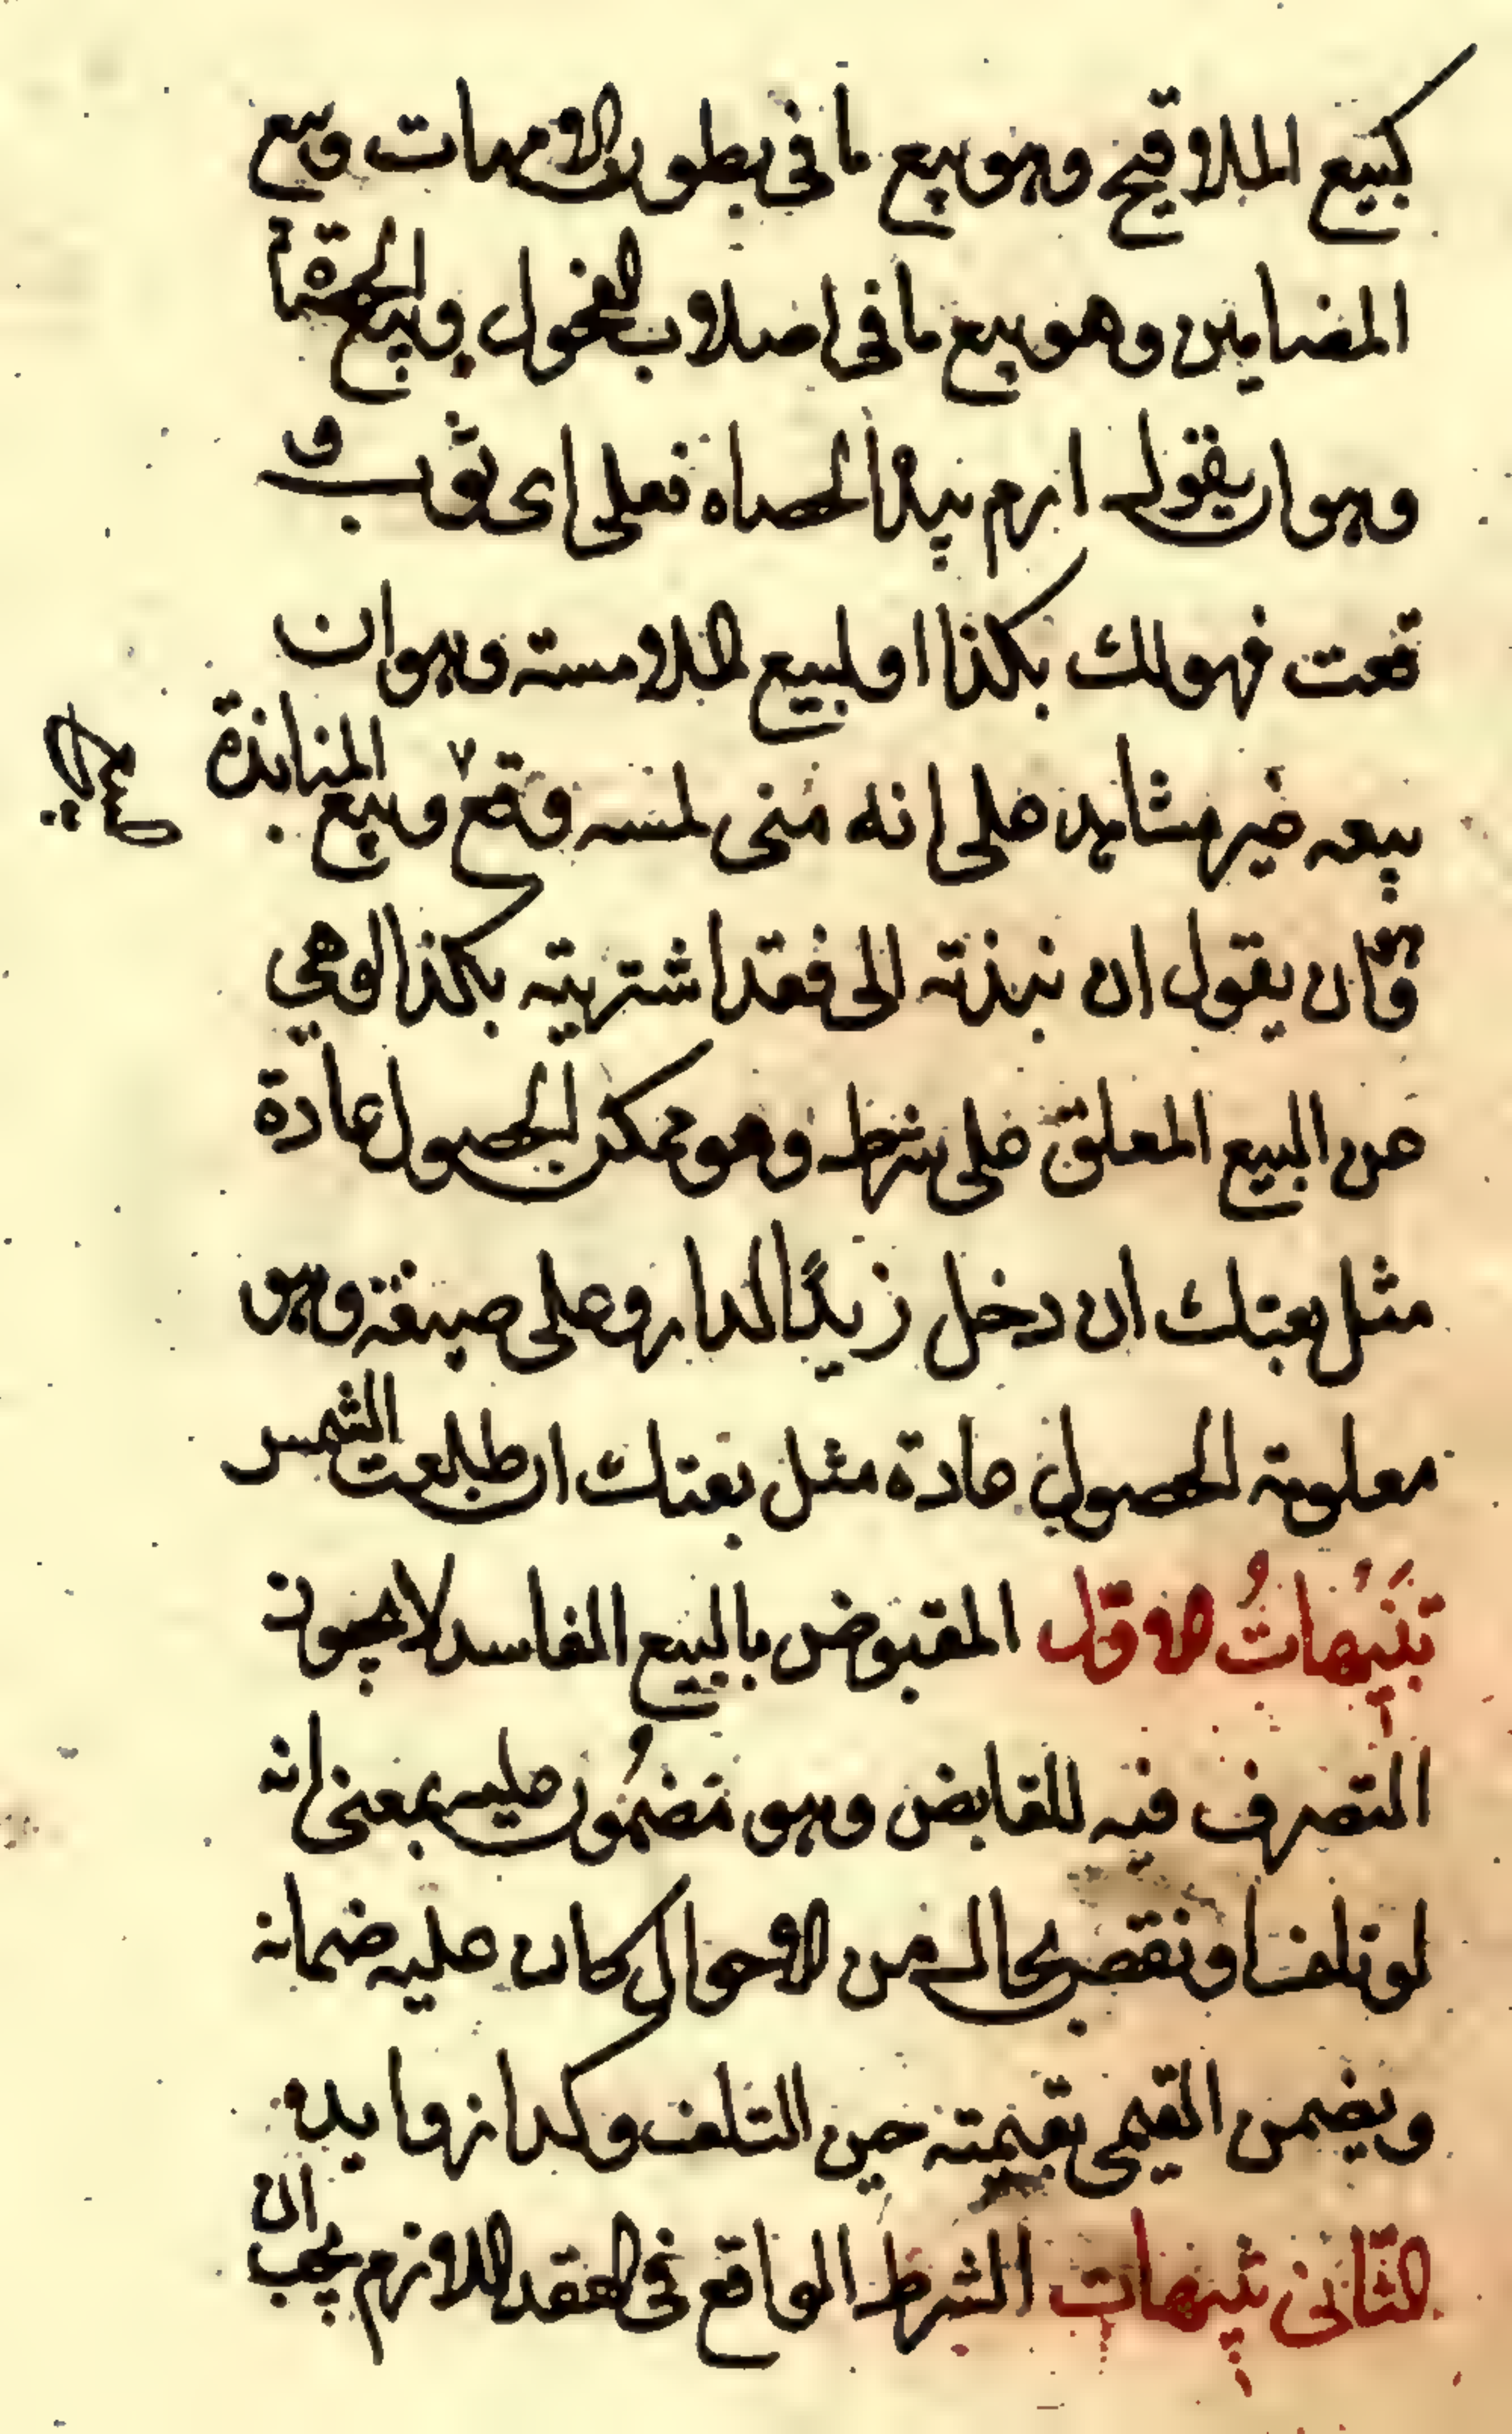 كبيع الملاقيح وهو بيع ما فى بطون الامهات وبيع
المضامين وهو بيع ما فى اصلاب الفحول وبيع الحصاة
وهو ان يقول ارم بهذا الحصاه فعلى اى ثوب و
قعت فهو لك بكذا او لبيع الملامسته وهو ان
بيعه غير مشاهد على انه متى لمسه وقع وبيع المنابذة
صحيح
وهو ان يقول ان نبذته الى فقد اشتريته بكذا
عن البيع المعلق على شرط وهو ممكن الحصول عادة
مثل بعتك ان دخل زيدًا الدار وعلى صيغة وهو
معلومة الحصول عادة مثل بعتك ان طلعت الشمس
تنبيهات الاوّل المقبوض بالبيع الفاسد لا يجوز
التصرف فيه للقابض وهو مضمُون عليه بمعنى انه
لو تلف او نقص بحال من الاحوال كان عليه ضمانه
ويضمن القيمى بقيمته حين التلف وكدا زوايده
الثّانى تنبيهات الشرط الواقع فى العقد اللازم يجب ان